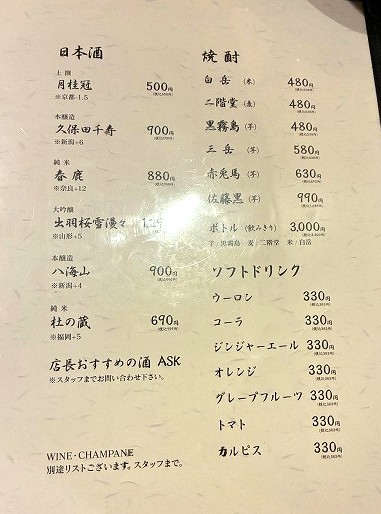 日本酒
上撰
月桂冠 500円
※京都-1.5
本醸造
久保田千寿 900円
※新潟+6
純米
春鹿 880円
※奈良+12
大吟醸
出羽桜雪漫々
※山形+5
本醸造
八海山 900円
※新潟+4
純米
杜の蔵 690円
※福岡+5
店長おすすめの酒 ASK
※スタッフまでお問い合わせ下さい。
WINE・CHAMPANE
別途リストございます。スタッフまで。
焼酎
白岳（米） 480円
二階堂（麦） 480円
黒霧島（芋） 480円
三岳（芋） 580円
赤兎馬（芋） 630円
佐藤黒（芋） 990円
ボトル（飲みきり） 3,000円
芋/黒霧島/麦/二階堂 米/白岳
ソフトドリンク
ウーロン 330円
コーラ 330円
ジンジャーエール 330円
オレンジ 330円
グレープフルーツ 330円
トマト 330円
カルピス 330円